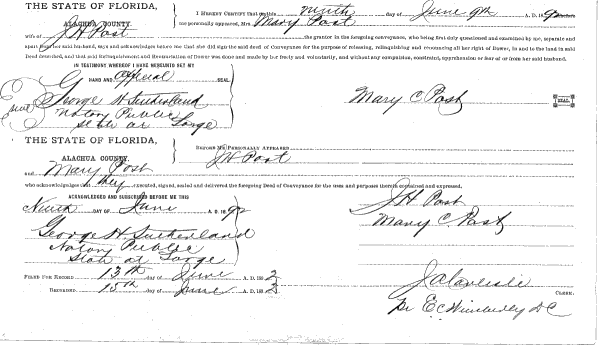 THE STATE OF FLORIDA,
ALACHUA COUNTY.
I HEREBY CERTIFY that on this ninth day of June 9th A. D. 1892
me personally appeared, Mrs. Mary Post
wife of J H Post the grantor in the foregoing conveyance, who being first duly questioned and examined by me, separate and
apart from her said husband, says and acknowledges before me that she did sign the said deed of Conveyance for the purpose of releasing, relinquishing and renouncing all her right of Dower, in and to the land in said
Deed described, and that said Relinquishment and Renunciation of Dower was done and made by her freely and voluntarily, and without any compulsion, constraint, apprehension or fear of or from her said husband.
IN TESTIMONY WHEREOF I HAVE HEREUNTO SET MY
HAND AND official SEAL
Seal
George H Sutherland
Notary Public
State at Large
Mary C Post
SEAL.
THE STATE OF FLORIDA,
ALACHUA COUNTY.
BEFORE ME PERSONALLY APPEARED
J H Post
and Mary Post
who acknowledges they executed, signed, sealed and delivered the foregoing Deed of Conveyance for the uses and purposes therein contained and expressed.
ACKNOWLEDGED AND SUBSCRIBED BEFORE ME THIS
Ninth DAY OF June A. D. 1892
J H Post
Mary C. Post
George H Sutherland
Notary Public
State at Large
FILED FOR RECORD 13th day of June A. D. 1892
RECORDED 15th day of June A. D. 1892
J A Carlisle CLERK.
Pr E C Wimberley D C